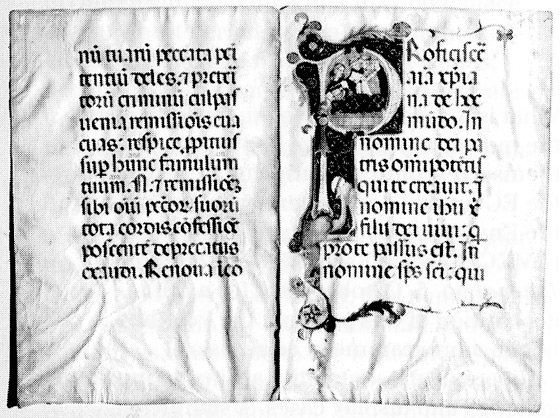 nū tuarū peccata peī
tentiū deles. ⁊ p̄teri
torū criminū culpas
uenia remissiōis eua
cuas: respice ppitius
sup hunc famulum
tuum. N. ⁊ remissiōeʒ
sibi oīū pctōr suorū
tota cordis cōfessiōe
poscente deprecatus
exaudi. Renoua ī eo
Roficiscē
aīa xp̄ia
na de hoc
mūdo. In
nomine dei pa
tris omīpotētis
qui te creauit. Ī
nomine ihū x̄
filii dei uiui: q
pro te passus est. In
nomine sp̄s sc̄i: qui